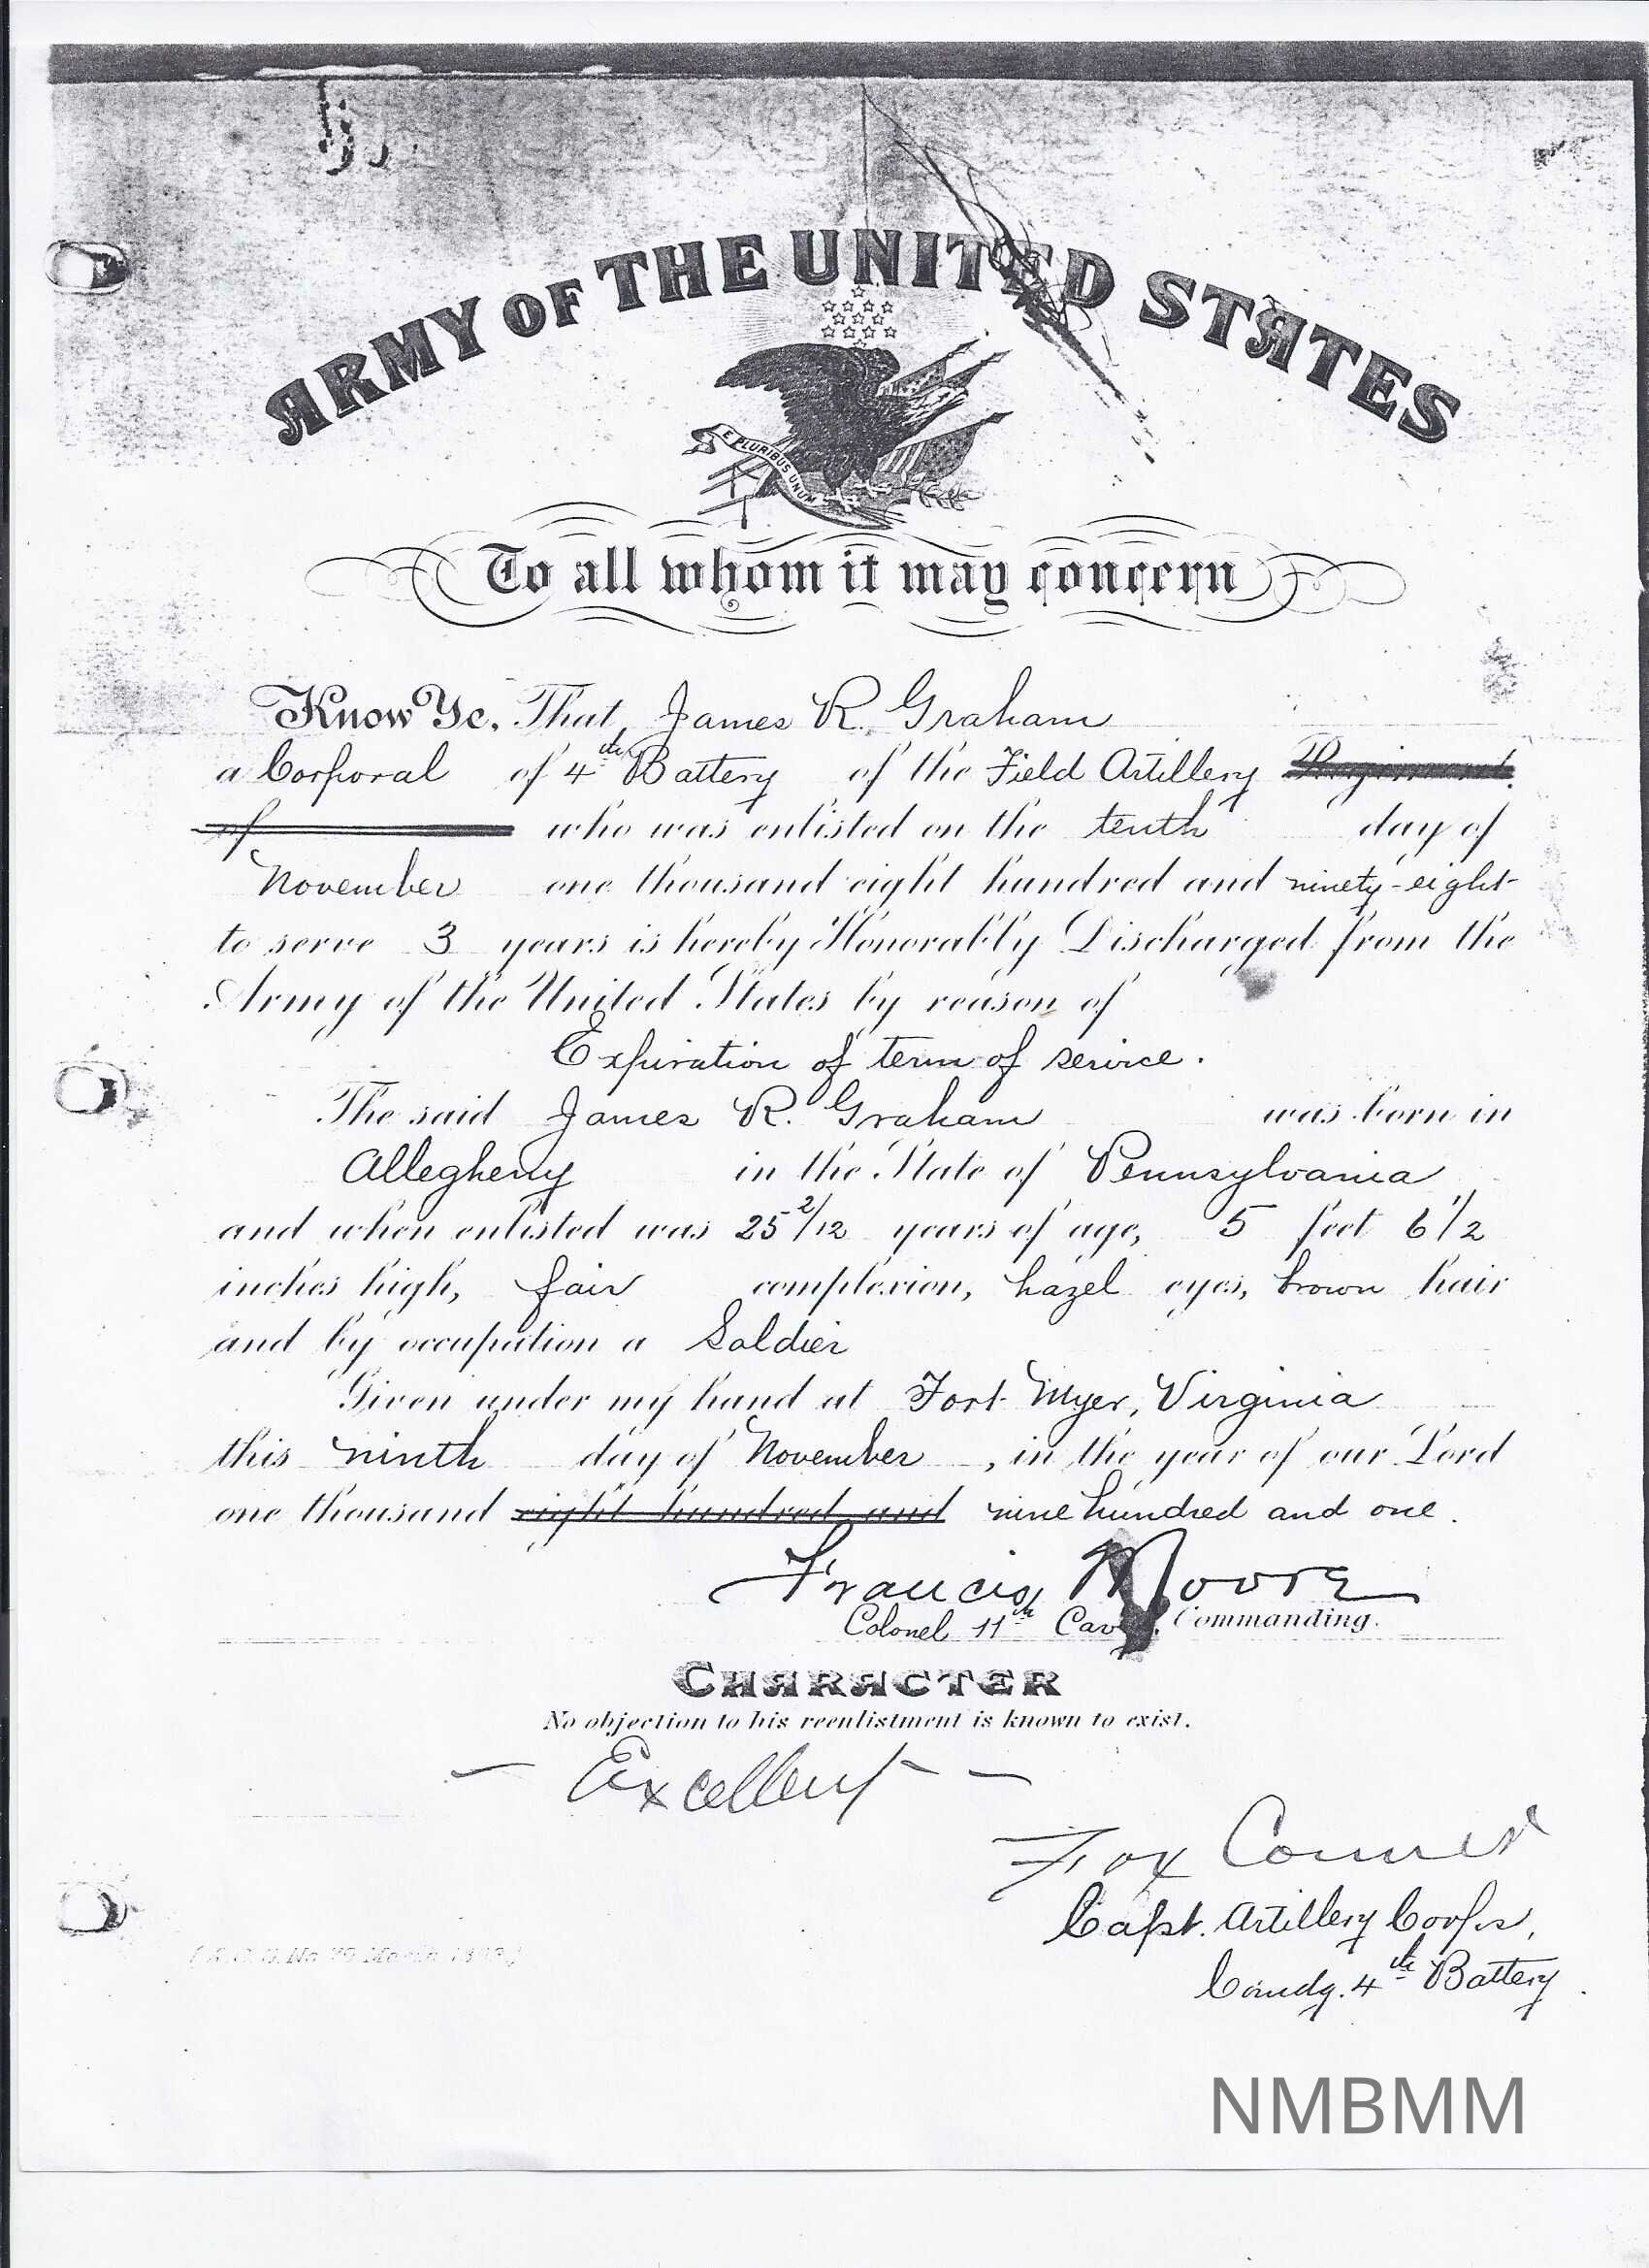 ARMY OF THE UNITED STATES
E PLURIBUS UNUM
To all whom it may concern
Know Ye, That James R. Graham
a Corporal of 4th Battery of the Field Artillery Regiment
of who was enlisted on the tenth day of
November one thousand eight hundred and ninety-eight
to serve 3 years is hereby Honorably Discharged from the
Army of the United States by reason of
Expiration of term of service.
The said James R. Graham was born in
Allegheny in the State of Pennsylvania
and when enlisted was 25 2/12 years of age, 5 feet 6 1/2
inches high, fair complexion, hazel eyes, brown hair
and by occupation a Soldier
Given under my hand at Fort Myer, Virginia
this ninth day of November, in the year of our Lord
one thousand eight hundred and nine hundred and one.
Francis Moore
Colonel 11th Cav. Commanding.
CHARACTER
No objection to his reenlistment is known to exist.
— Excellent —
Fox Conner
Capt. Artillery Corps,
Comdg. 4th Battery.
NMBMM